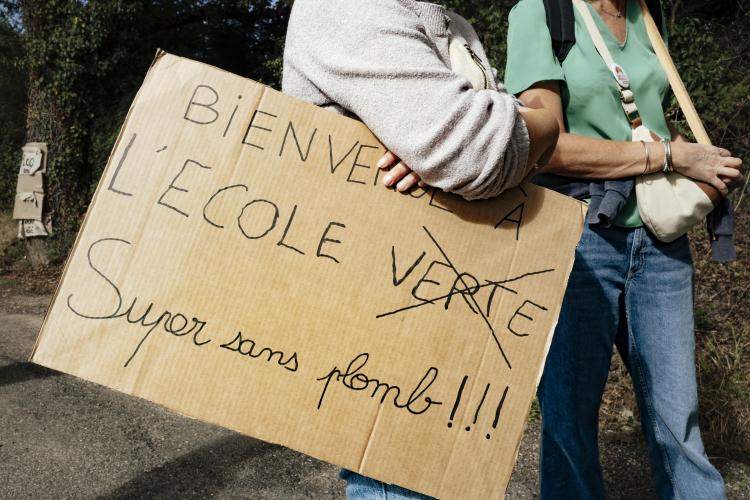 BiENVENUE A
L'ECOLE VERTE
Super sans plomb!!!